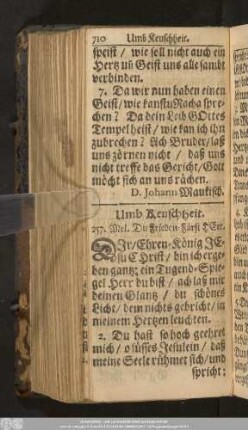 710 Umb Keuschheit.
speist / wie soll nicht auch ein
Hertz uñ Geist uns alle sambt
verbinden.
7. Da wir nun haben einen
Geist/wie kanstu Racha spre-
chen? Da dein Leib GOttes
Tempel heist / wie kan ich ihn
zubrechen? Ach Bruder/laß
uns zörnen nicht / daß uns
nicht treffe das Gericht/Gott
möcht sich an uns rächen.
D. Johann Maukisch.
Umb Keuschheit.
257. Mel. Du Frieden-Fürst HErr.
DIr/Ehren-König JE-
su CHrist/ bin ich erge-
ben gantz; ein Tugend-Spie-
gel Herr du bist / ach laß mir
deinen Glantz / du schönes
Licht/ dem nichts gebricht/in
meinem Hertzen leuchten.
2. Du hast so hoch geehret
mich/ o süsses Jesulein / daß
meine Seele rühmet sich/und
spricht: